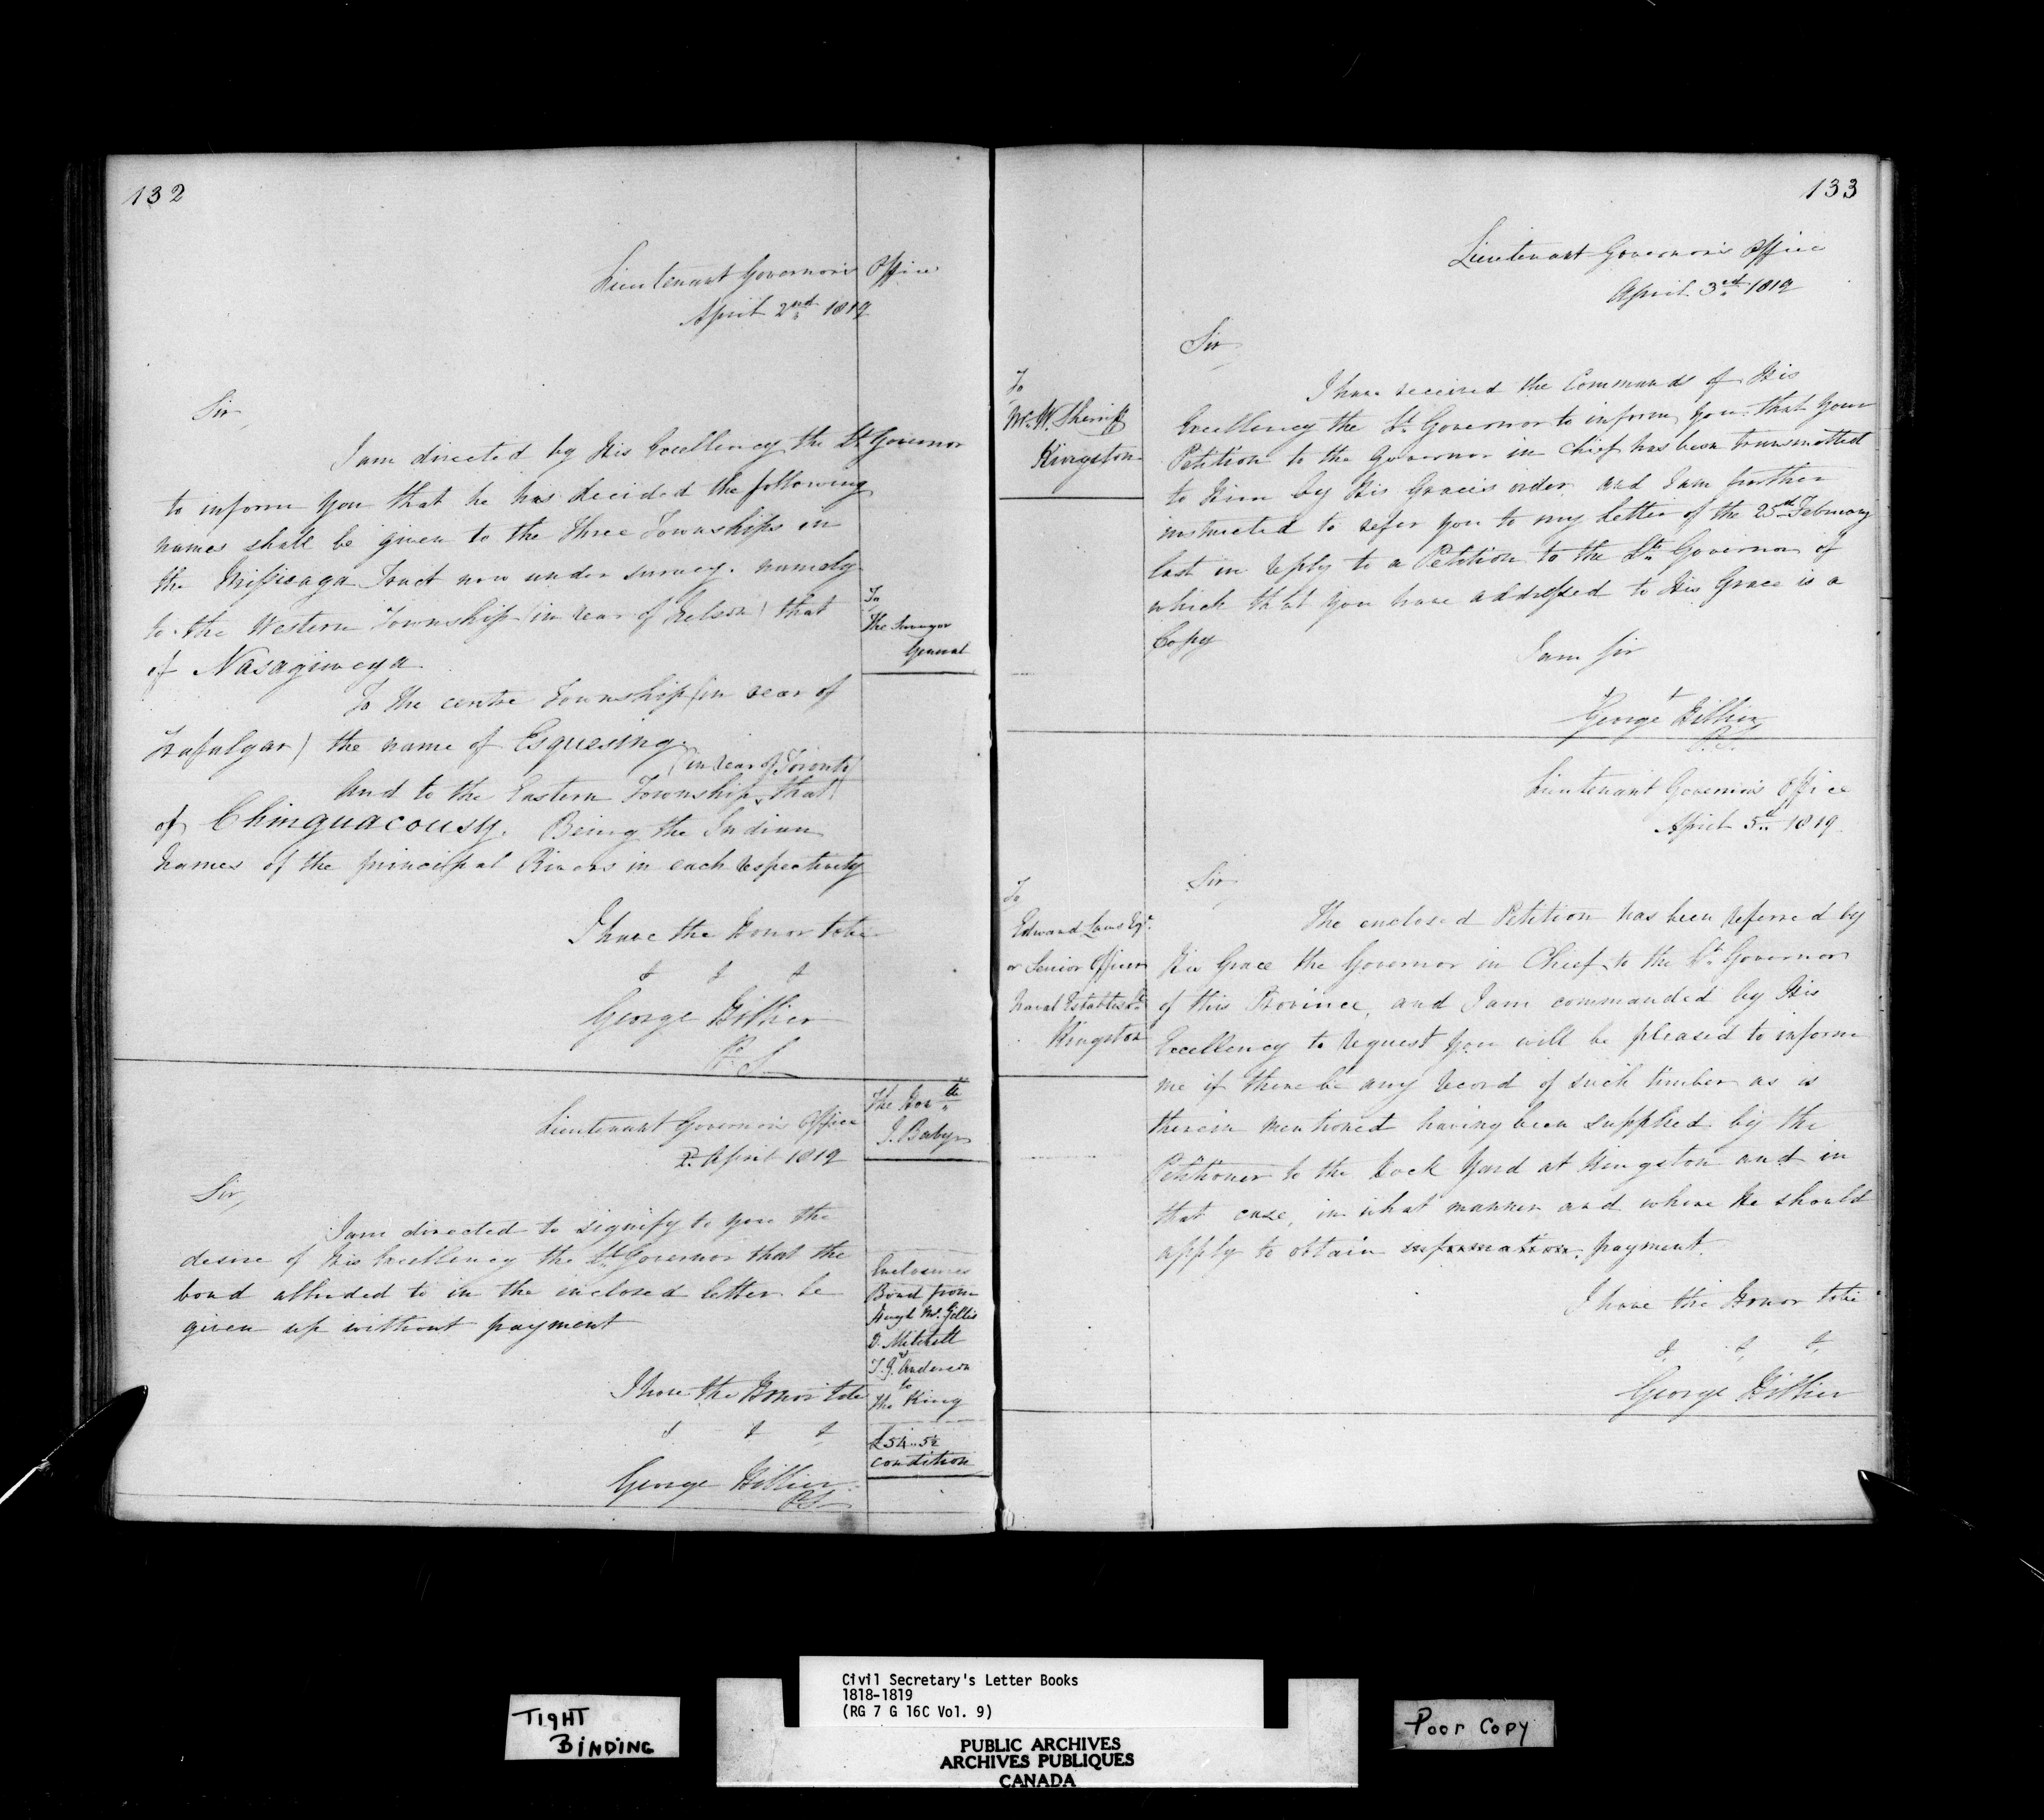 132
Lieutenant Governor's Office
April 2nd 1819
Sir,
I am directed by His Excellency the Lt Governor
to inform you that he has decided the following
names shall be given to the three Townships in
the Missisaga Tract now under survey. namely
to the Western Township (in rear of Nelson) that
of Nasagiweya
To the centre Township (in rear of
Trafalgar) the name of Esquesing.
(in rear of Toronto)
And to the Eastern Township, that
of Chinguacousy. Being the Indian
names of the principal Rivers in each respectively
I have the Honor to be
& & &
George Hillier
P. S.
To
The Surveyor
General
Lieutenant Governor's Office
2. April 1819
Sir,
I am directed to signify to you the
desire of His Excellency the Lt Governor that the
bond alluded to in the inclosed letter be
given up without payment
I have the Honor to be
& & &
George Hillier
P.S.
The Honble
J. Baby
Enclosures
Bond from
Hugh Mc. Gillis
D. Mitchell
T. G. Anderson
to
The King
£54..5½
condition
133
Lieutenant Governor's Office
April 3rd 1819
Sir
I have received the Commands of His
Excellency the Lt Governor to inform you that your
Petition to the Governor in Chief has been transmitted
to Him by His Grace's order and I am further
instructed to refer you to my letter of the 25th February
last in reply to a Petition to the Lt Governor of
which that you have addressed to His Grace is a
Copy
I am Sir
& &
George Hillier
P.S.
To
Mr. W. Sherriff
Kingston
Lieutenant Governor's Office
April 5th 1819.
Sir
The enclosed Petition has been referred by
His Grace the Governor in Chief to the Lt Governor
of this Province, and I am commanded by His
Excellency to request you will be pleased to inform
me if there be any record of such timber as is
therein mentioned having been supplied by the
Petitioner to the Dock Yard at Kingston and in
that case, in what manner and where He should
apply to obtain information. payment.
I have the Honor to be
& & &
George Hillier
To
Edward Laws Esqr
or Senior Officer
Naval Establisht
Kingston
TIGHT
BINDING
Civil Secretary's Letter Books
1818-1819
(RG 7 G 16C Vol. 9)
PUBLIC ARCHIVES
ARCHIVES PUBLIQUES
CANADA
Poor Copy